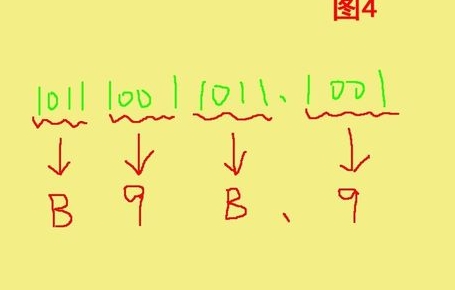 图4
1011 1001 1011、1001
B 9 B、9